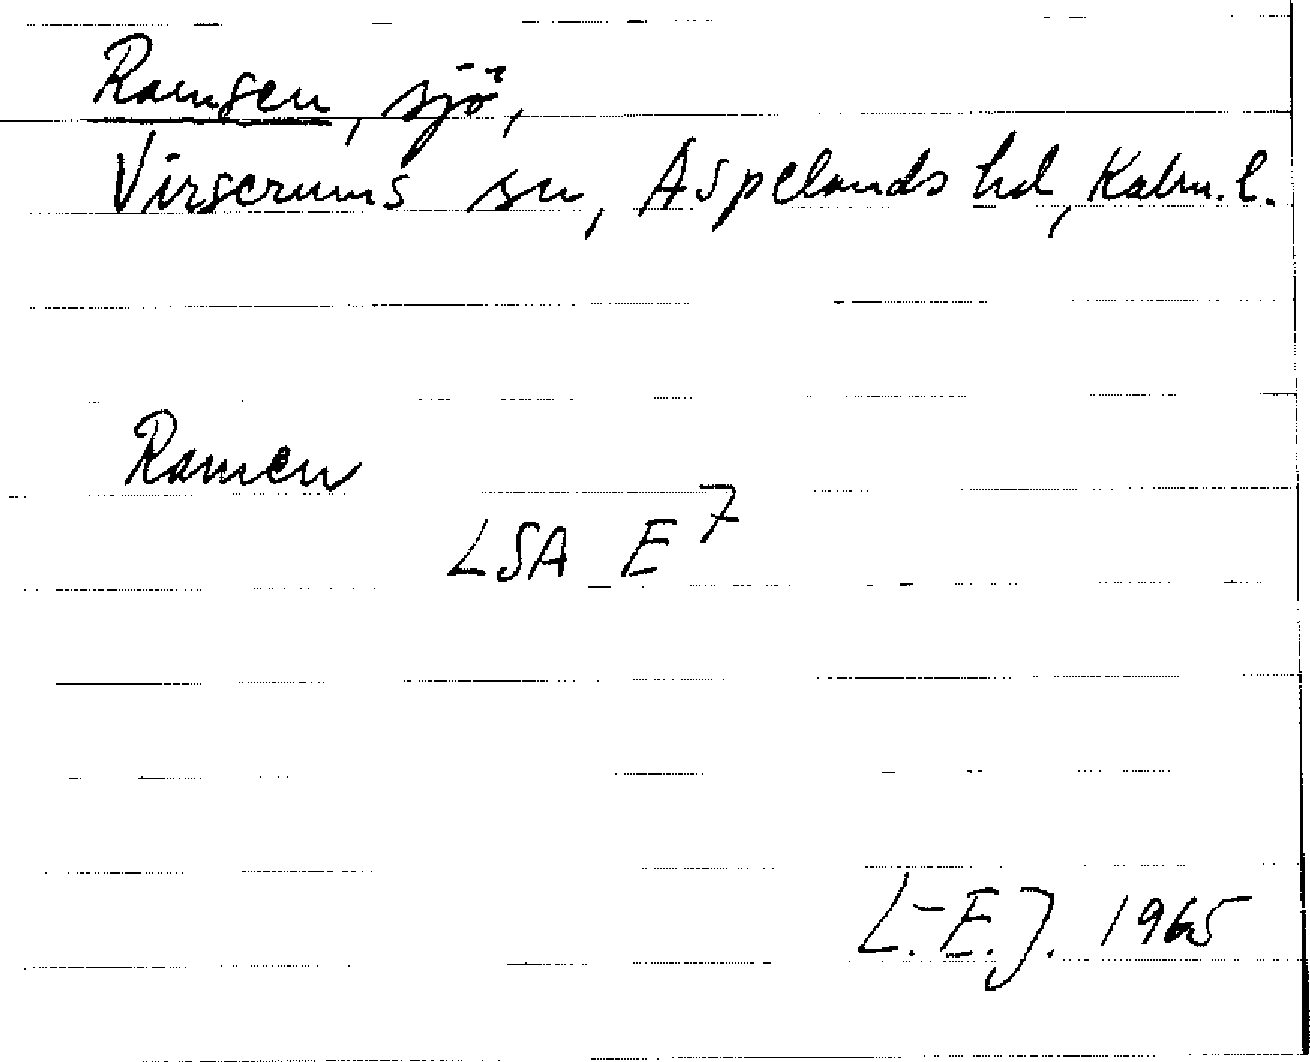 Ramsen, sjö,
Virserums sn, Aspelands hd, Kalm. l.
Ramen
LSA E 7
L.-E. J. 1965